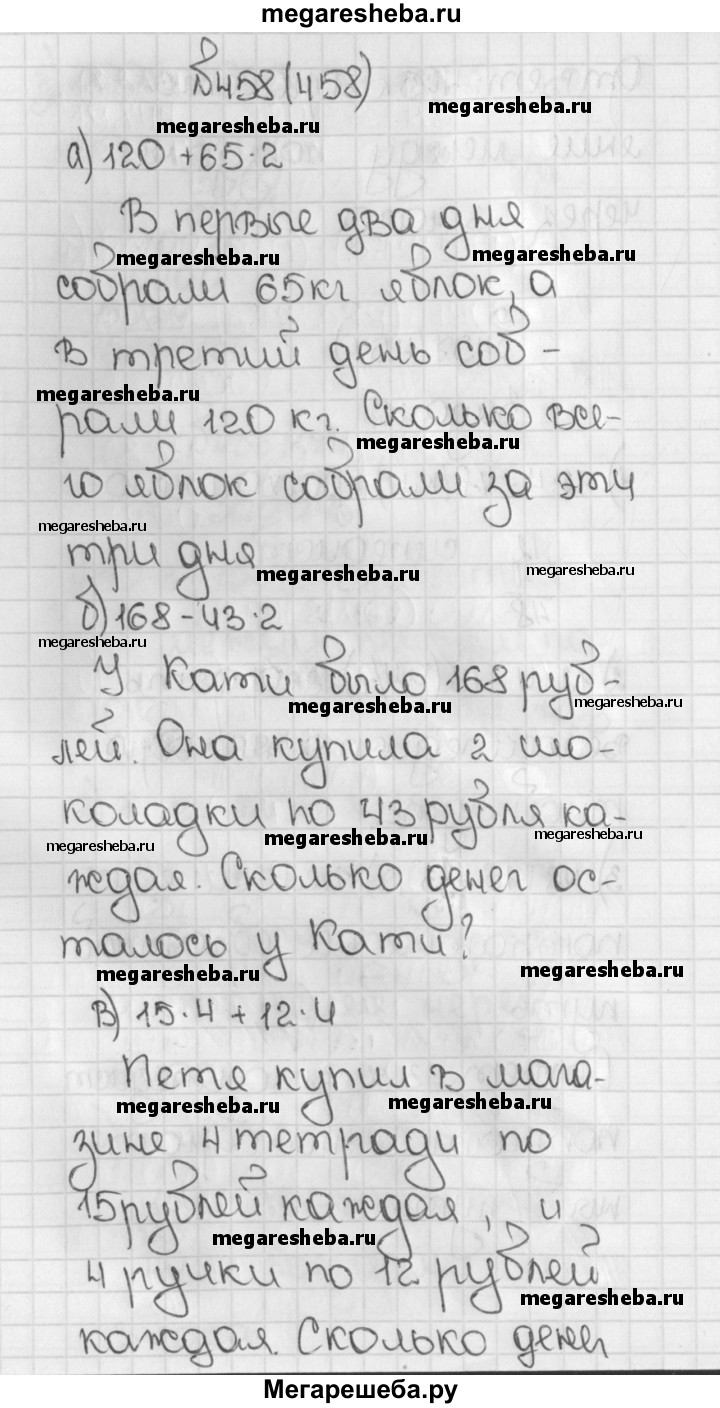 megaresheba.ru
№458(458)
megaresheba.ru
megaresheba.ru
а) 120 + 65·2
В первые два дня
megaresheba.ru
megaresheba.ru
собрали 65 кг яблок, а
в третий день соб-
megaresheba.ru
рали 120 кг. Сколько все-
megaresheba.ru
го яблок собрали за эти
megaresheba.ru
три дня
megaresheba.ru
megaresheba.ru
б) 168 - 43·2
megaresheba.ru
У Кати было 168 руб-
megaresheba.ru
megaresheba.ru
лей. Она купила 2 шо-
коладки по 43 рубля ка-
megaresheba.ru
megaresheba.ru
megaresheba.ru
ждая. Сколько денег ос-
талось у Кати?
megaresheba.ru
megaresheba.ru
в) 15·4 + 12·4
Петя купил в мага-
megaresheba.ru
megaresheba.ru
зине 4 тетради по
15 рублей каждая, и
megaresheba.ru
4 ручки по 12 рублей
megaresheba.ru
каждая. Сколько денег
Мегарешеба.ру